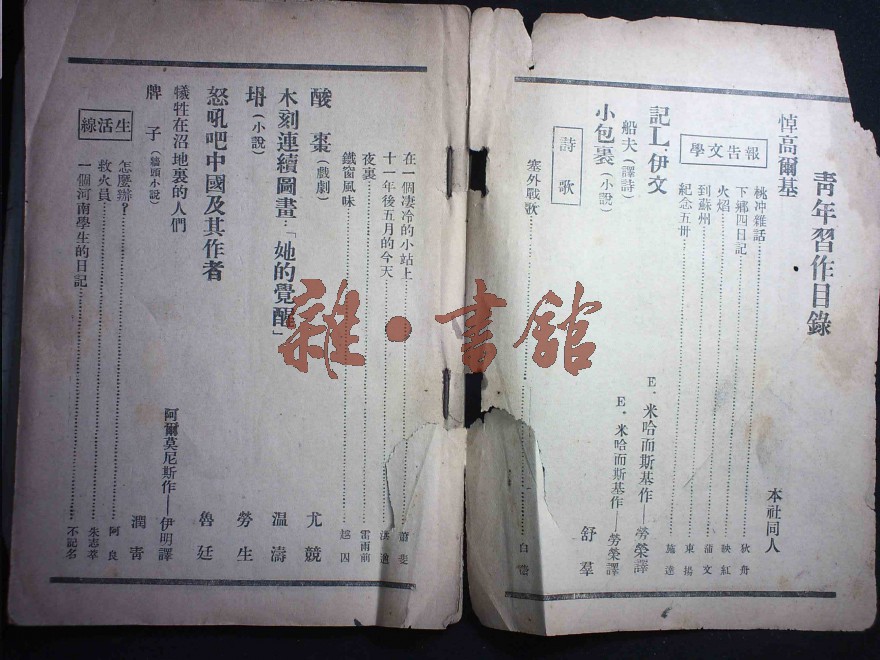 青年習作目錄
悼高爾基 本社同人
報告文學
桃冲雜話 狄舟
下鄉四日記 映紅
火焰 蒲文
到蘇州 東揚
紀念五卅 施達
記L·伊文 E·米哈而斯基作——勞榮譯
船夫(譯詩) E·米哈而斯基作——勞榮譯
小包裹(小說) 舒羣
詩歌
塞外戰歌 白
在一個凄冷的小站上
十一年後五月的今天
夜裏 雷雨前
鐵窗風味 囚
酸棗(戲劇) 尤競
木刻連續圖畫:「她的覺醒」 温濤
坍(小說) 勞生
怒吼吧中國及其作者 魯廷
犧牲在沼地裏的人們 阿爾莫尼斯作——伊明譯
牌子(牆頭小說) 潤青
生活線
怎麽辦? 阿良
救火員 朱志萃
一個河南學生的日記 不記名
雜·書館